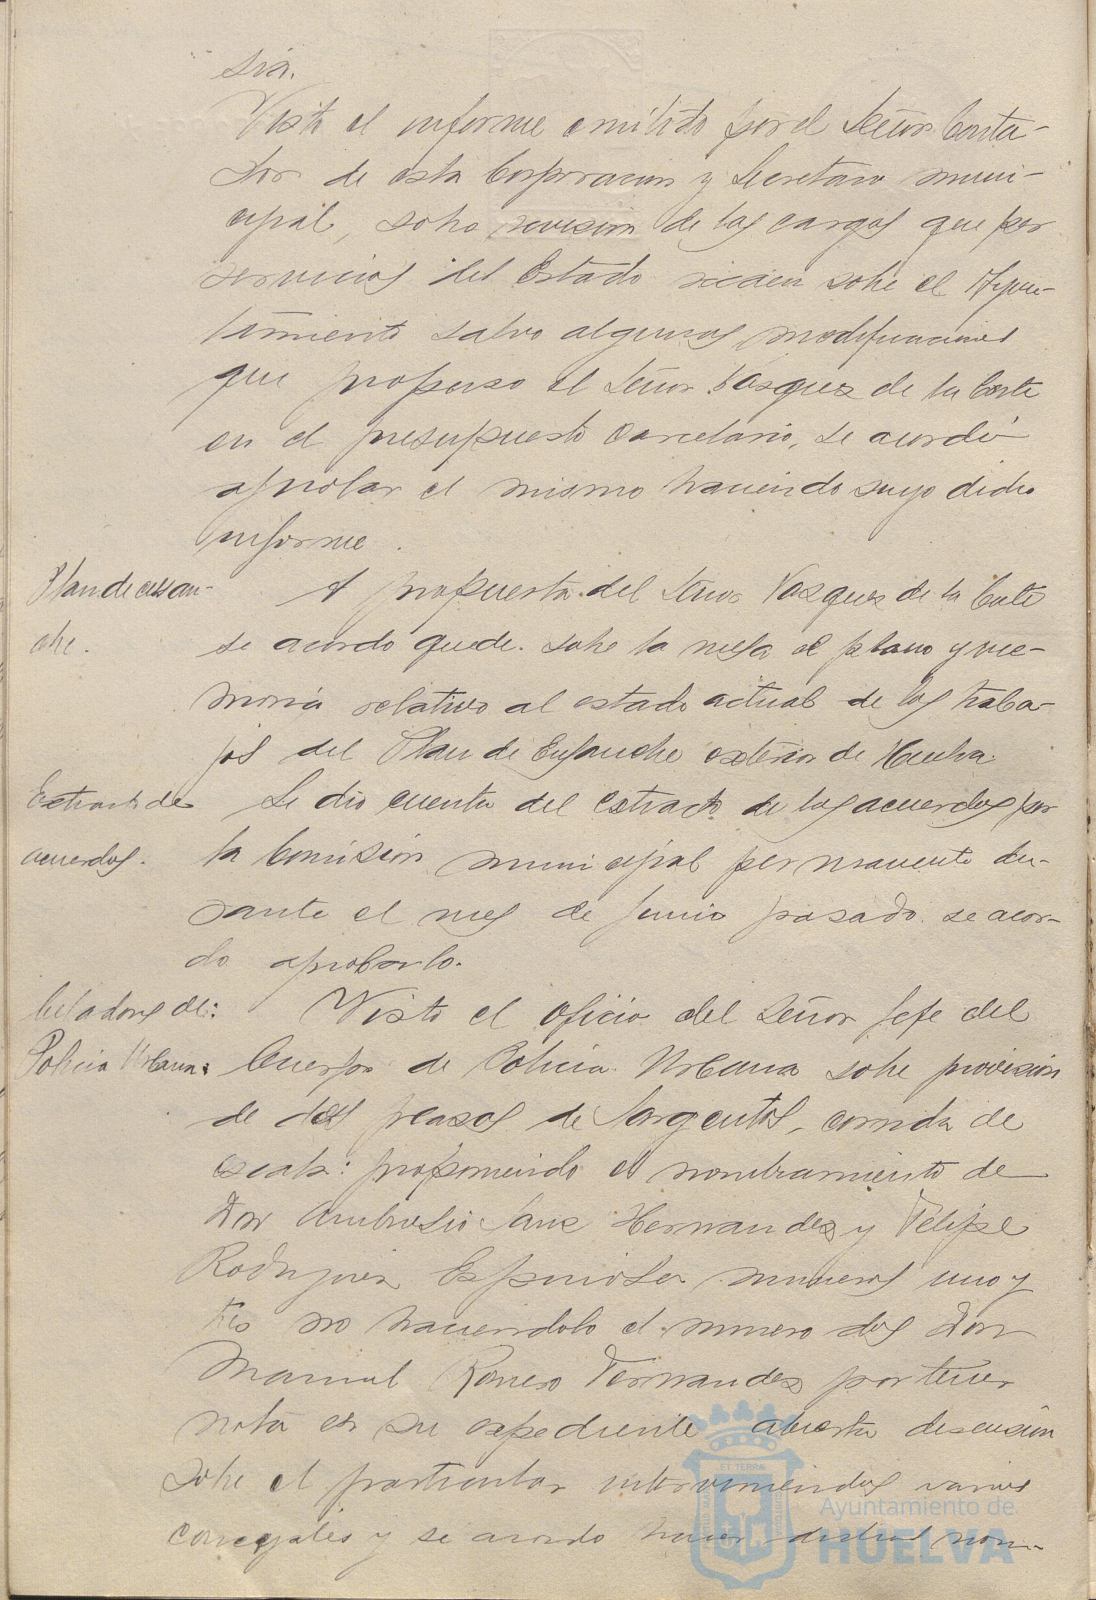 sia.
Visto el informe emitido por el Señor Conta-
dor de esta Corporacion y Secretario muni-
cipal, sobre revision de las cargas que por
servicios del Estado sobre el Ayun-
tamiento salvo algunas modificaciones
que propuso el Señor Vasquez de la Corte
en el presupuesto carcelario, se acordó
aprobar el mismo haciendo suyo dicho
informe.
Plan de ensan-
che.
A propuesta del Señor Vasquez de la Corte
se acordo quede sobre la mesa el plano y me-
moria relativo al estado actual de los traba-
jos del Plan de Ensanche exterior de Huelva.
Extracto de
acuerdos.
Se dio cuenta del extracto de los acuerdos por
la Comision municipal permanente du-
rante el mes de Junio pasado se acor-
do aprobarlo.
Celadores de:
Policia Urbana.
Visto el oficio del Señor Jefe del
Cuerpo de Policia Urbana sobre provision
de dos plazas de Sargentos, corrida de
escala: proponiendo el nombramiento de
Don Ambrosio Sanz Hernandez y Felipe
Rodriguez Espinosa numeros uno y
tres no haciendolo el numero dos Don
Manuel Romero Fernandez por tener
nota en su expediente abierta discusion
sobre el particular interviniendo varios
concejales y se acordo hacer dichos nom-
Ayuntamiento de
HUELVA